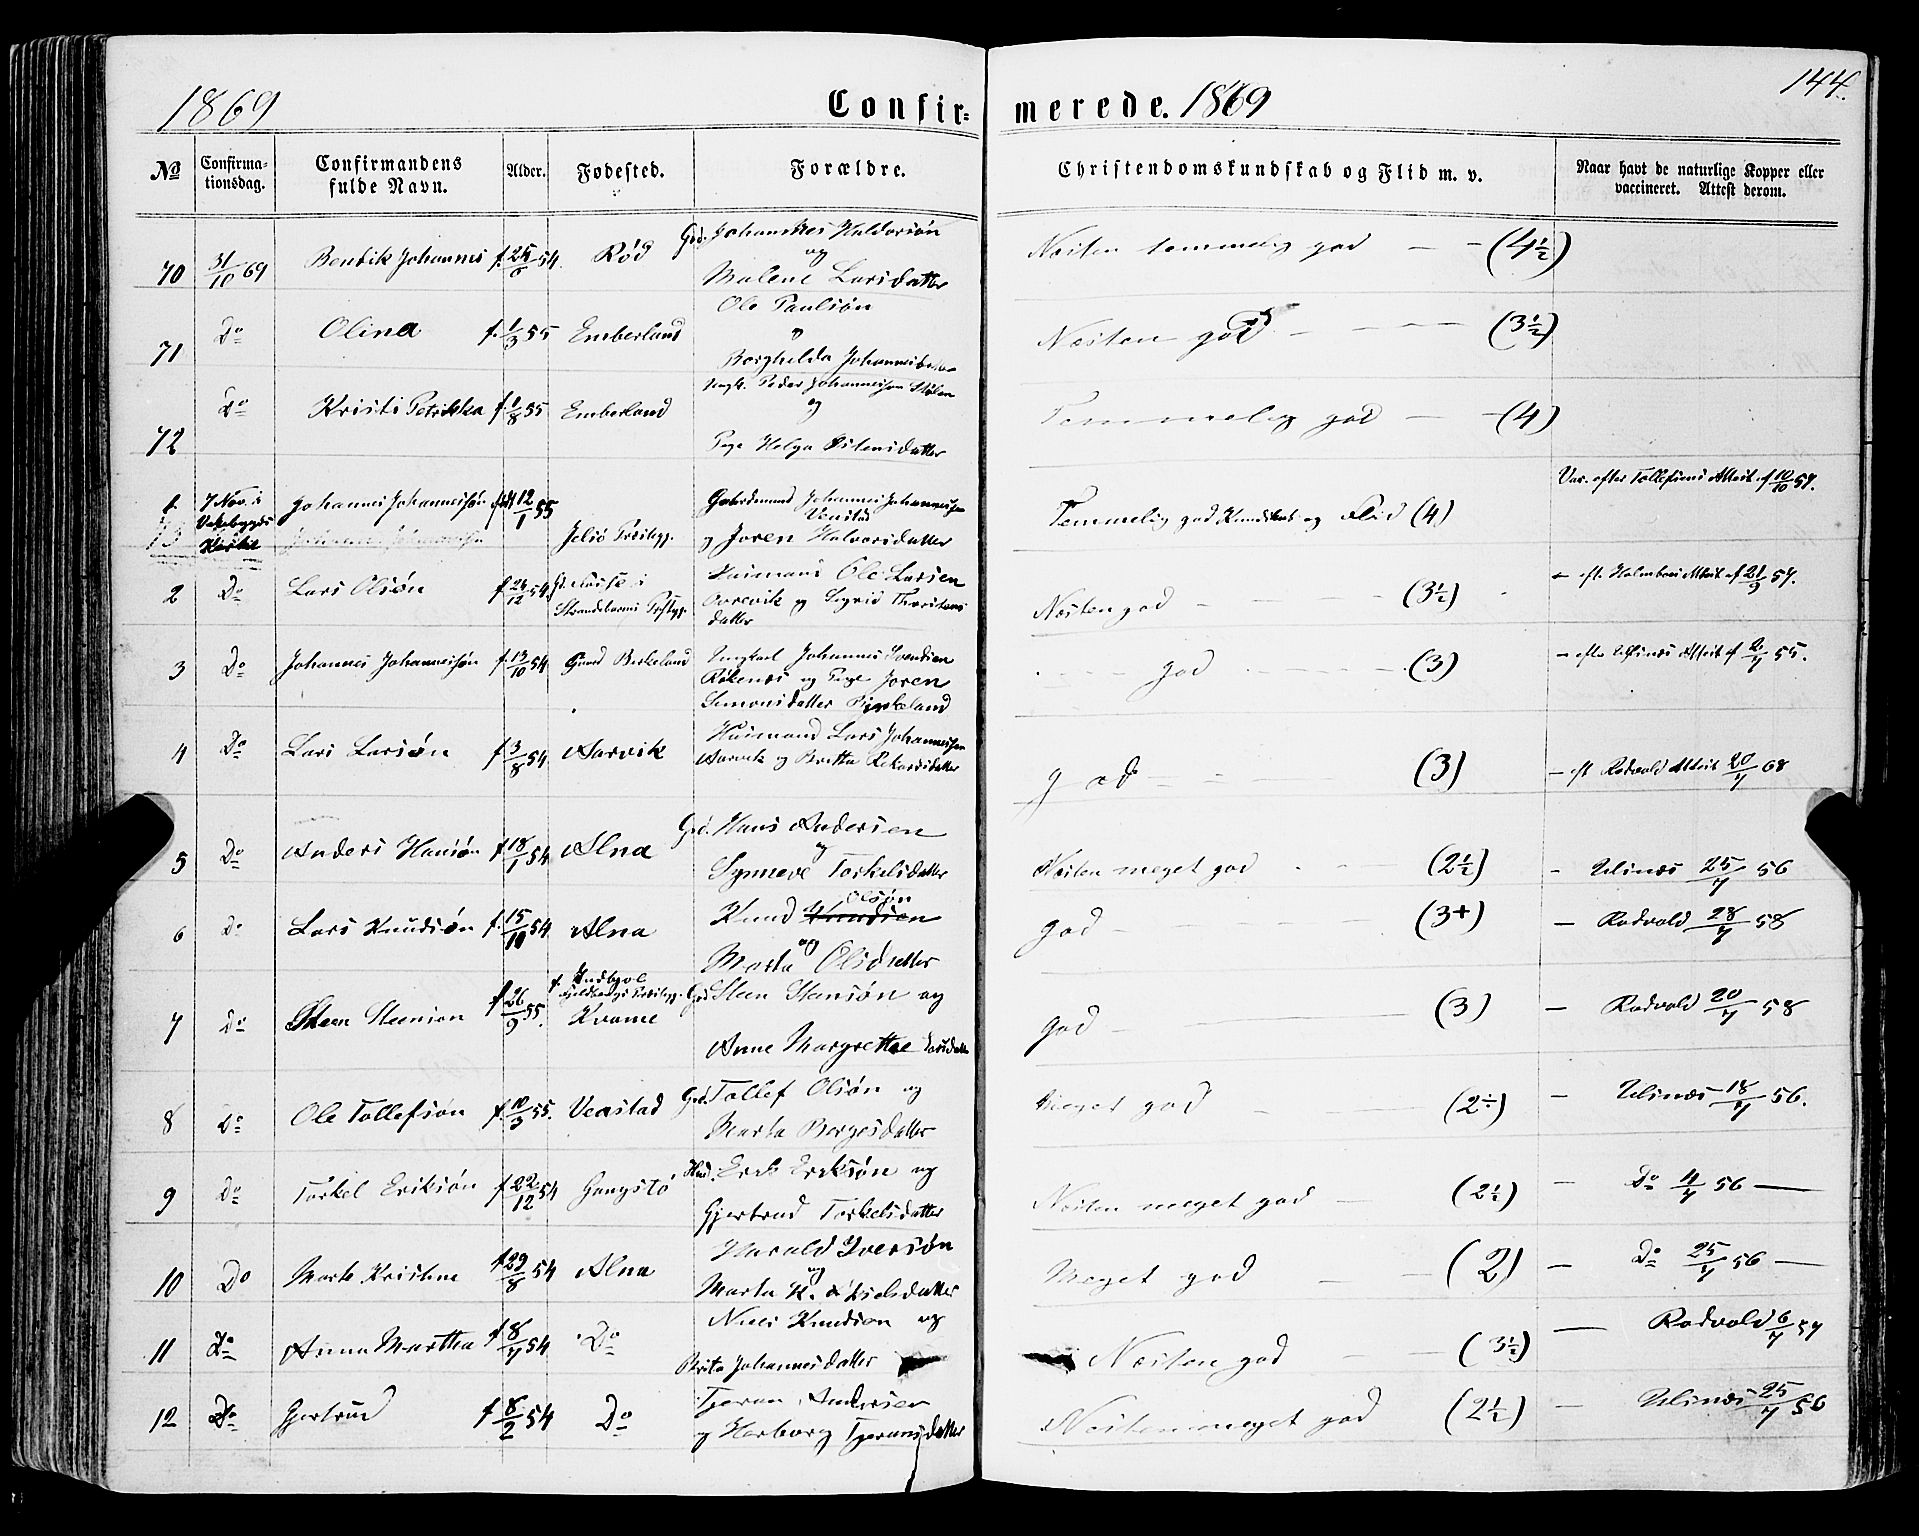 1869 Confir= merede. 1869 144.
No Confirma-tionsdag. Confirmandens fulde Navn. Alder. Fødested. Forældre. Christendomskundskab og Flid m. v. Naar havt de naturlige Kopper eller vaccineret. Attest derom.
70 31/10 69 Bendik Johannes f. 54 Rød Grd. Johannes Haldorsøn
og
Malene Larsdatter
Næsten temmelig god — - (4½)
71 Do Olina f. 1/3 55 Emberland Ole Paulsøn
og
Borghilda
Næsten god - - - - (3½)
72 Do Kristi Petrikka f. 1/8 55 Emberland Ungk. Peder Johannesson
og
Pige Helga Østensdatter
Temmelig god — - (4)
1 7 Nov. i
Kirke
Johannes Johannessøn født 12/1 55 Jelsø Præstegj. Gaardmand Johannes Johannessen
Venstad
og Joren Halvorsdatter
Temmelig god Kundskab og Flid (4)
Vac. efter Tollefsens Attest af 10/10 57.
2 Do Lars Olsøn f. 26/12 54 i
Strandebarms Præstgj.
Huusmand Ole Larsen
og Sigrid Thorstens
datter
Næsten god - - - (3½)
— eft. Holmboes Attest af 21/9 57.
3 Do Johannes Johannessøn f. 13/10 54 Gaard Birkeland Ungkarl Johannes Svendsen
og Pige Joren
Simonsdatter Birkeland
god - - - (3)
— efter Attest af 2/7 55.
4 Do Lars Larsøn f 3/8 54 Aarvik Huusmand Lars Johannessen
Aarvik og Britta Rikardsdatter
god - - - (3)
— eft Rodvald Attest 20/7 68
5 Do Anders Hansøn f 18/1 54 Alna Grd. Hans Andersen
og
Synneve Torkelsdatter
Næsten meget god - - - (2½)
— 25/7 56
6 Do Lars Knudsøn f. 15/11 54. Alna Knud Knudsen Olsøn
og
Marta Olsdatter
god - - - (3+)
— Rodvold 28/7 58
7 Do Steen Steensen f 26/9 55. Krame Grd. Steen Stensøn og
Anne Margrethe Larsdatter
god - - - (3)
— Rodvold 20/7 58
8 Do Ole Tollefsøn f. 10/3 55. Venstad Grd. Tollef Olsøn og
Marta Borgesdatter
Meget god - — (2÷)
— 18/7 56.
9 Do Torkel Eriksøn f 22/12 54 Gangstø Husd. Erik Eriksøn og
Gjertrud Torkelsdatter
Næsten meget god — (2½)
— Do 4/7 56 —
10 Do Marta Kristine f 29/8 54 Alna Harald Iversøn
og
Marta K.
Meget god — - (2)
— Do 25/7 56 —
11 Do Anna Martha f 8/7 54 Do Niels Knudsen og
Brita Johannesdatter
Næsten god — - (3½)
— Rodvold 6/7 57
12 Do Gjertrud f 8/2 54 Do Tjeran Andersen
og Harborg Tjeransdatter
Næsten meget god (2½)
— 25/7 56